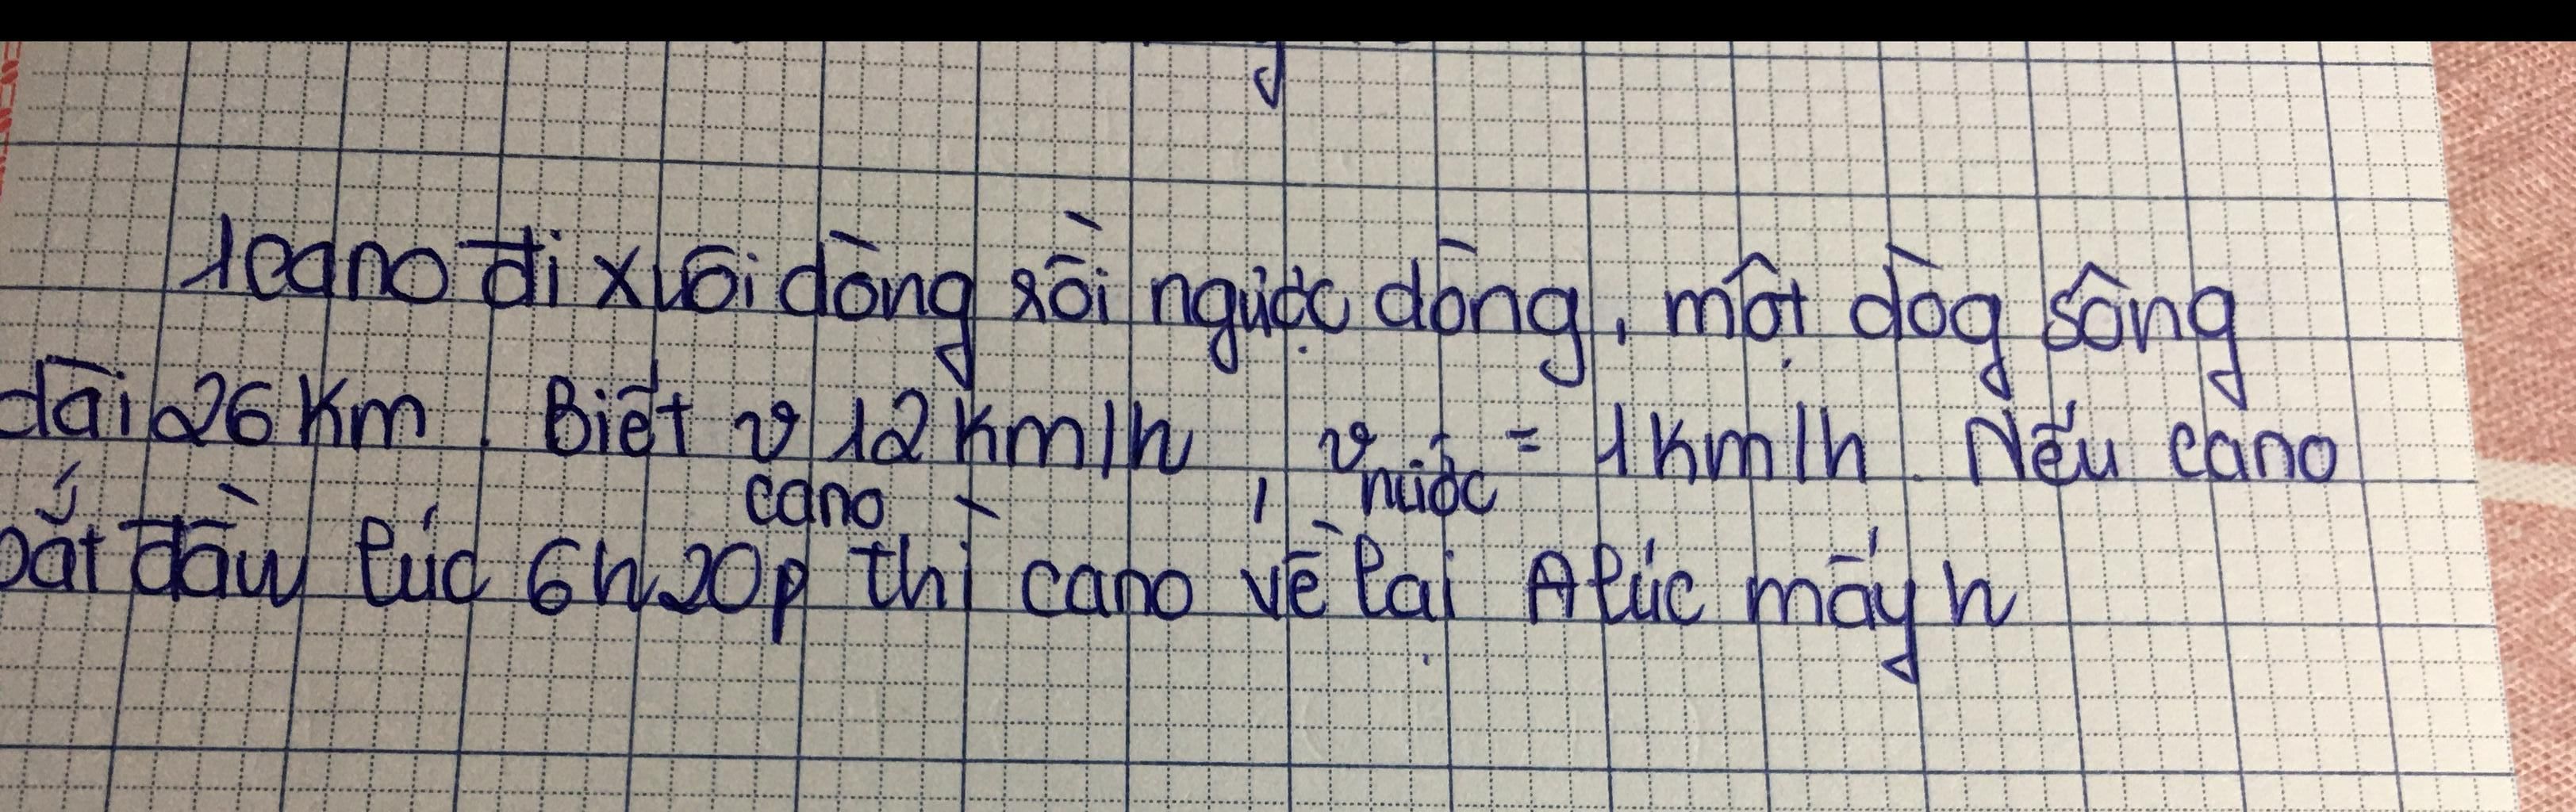 1 cano đi xuôi dòng rồi ngược dòng, một dòg sông
dài 26 km. Biết v cano 12 km/h, v nước = 1 km/h. Nếu cano
bắt đầu lúc 6h 20p thì cano về lại A lúc mấy h